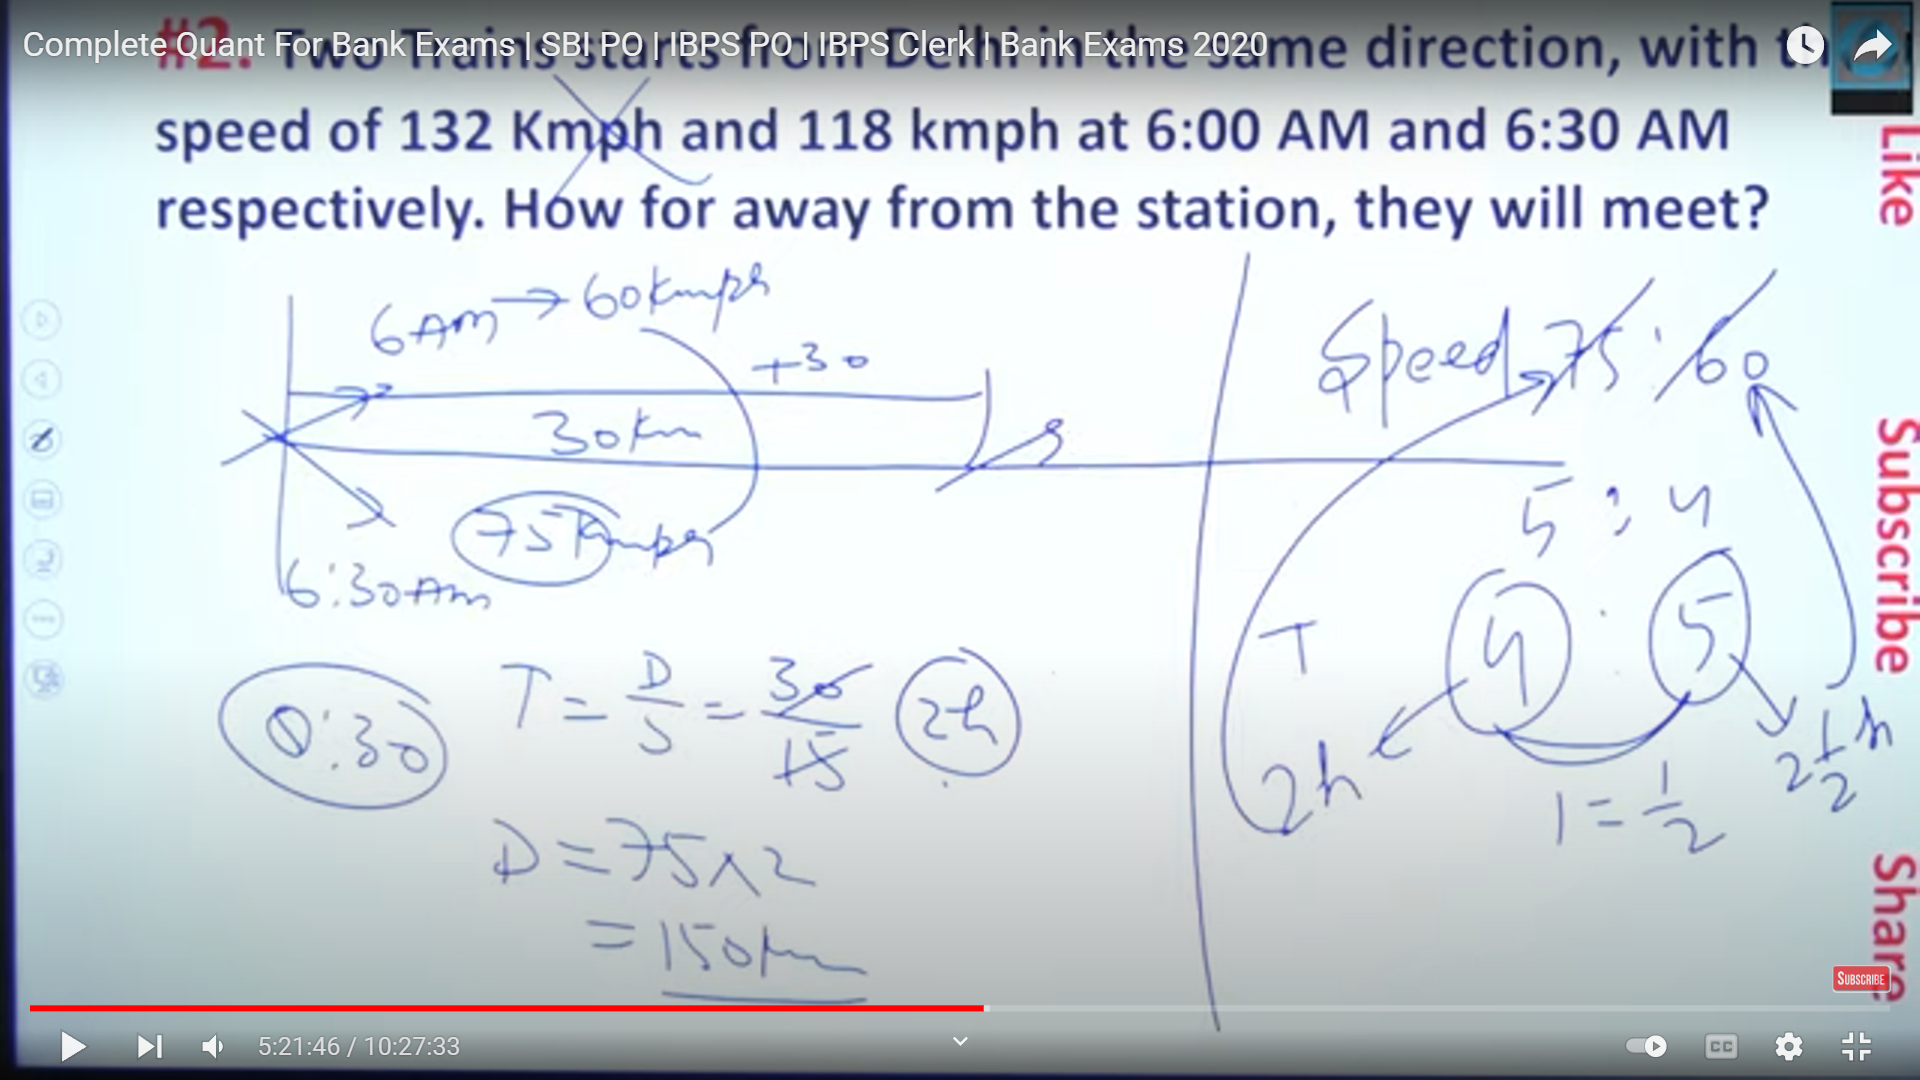 Complete Quant For Bank Exams | SBI PO | IBPS PO | IBPS Clerk | Bank Exams 2020
#2. Two Trains starts from Delhi in the same direction, with
speed of 132 Kmph and 118 kmph at 6:00 AM and 6:30 AM
respectively. How for away from the station, they will meet?
6 AM → 60 Kmph
+30
30 km
75 Kmph
6:30 Am
0:30
T = D/S = 30/15 2h
D = 75 × 2
= 150 km
Speed → 75 : 60
5 : 4
T 4 : 5
2h 2 1/2 h
1 = 1/2
Like
Subscribe
Share
SUBSCRIBE
5:21:46 / 10:27:33
CC